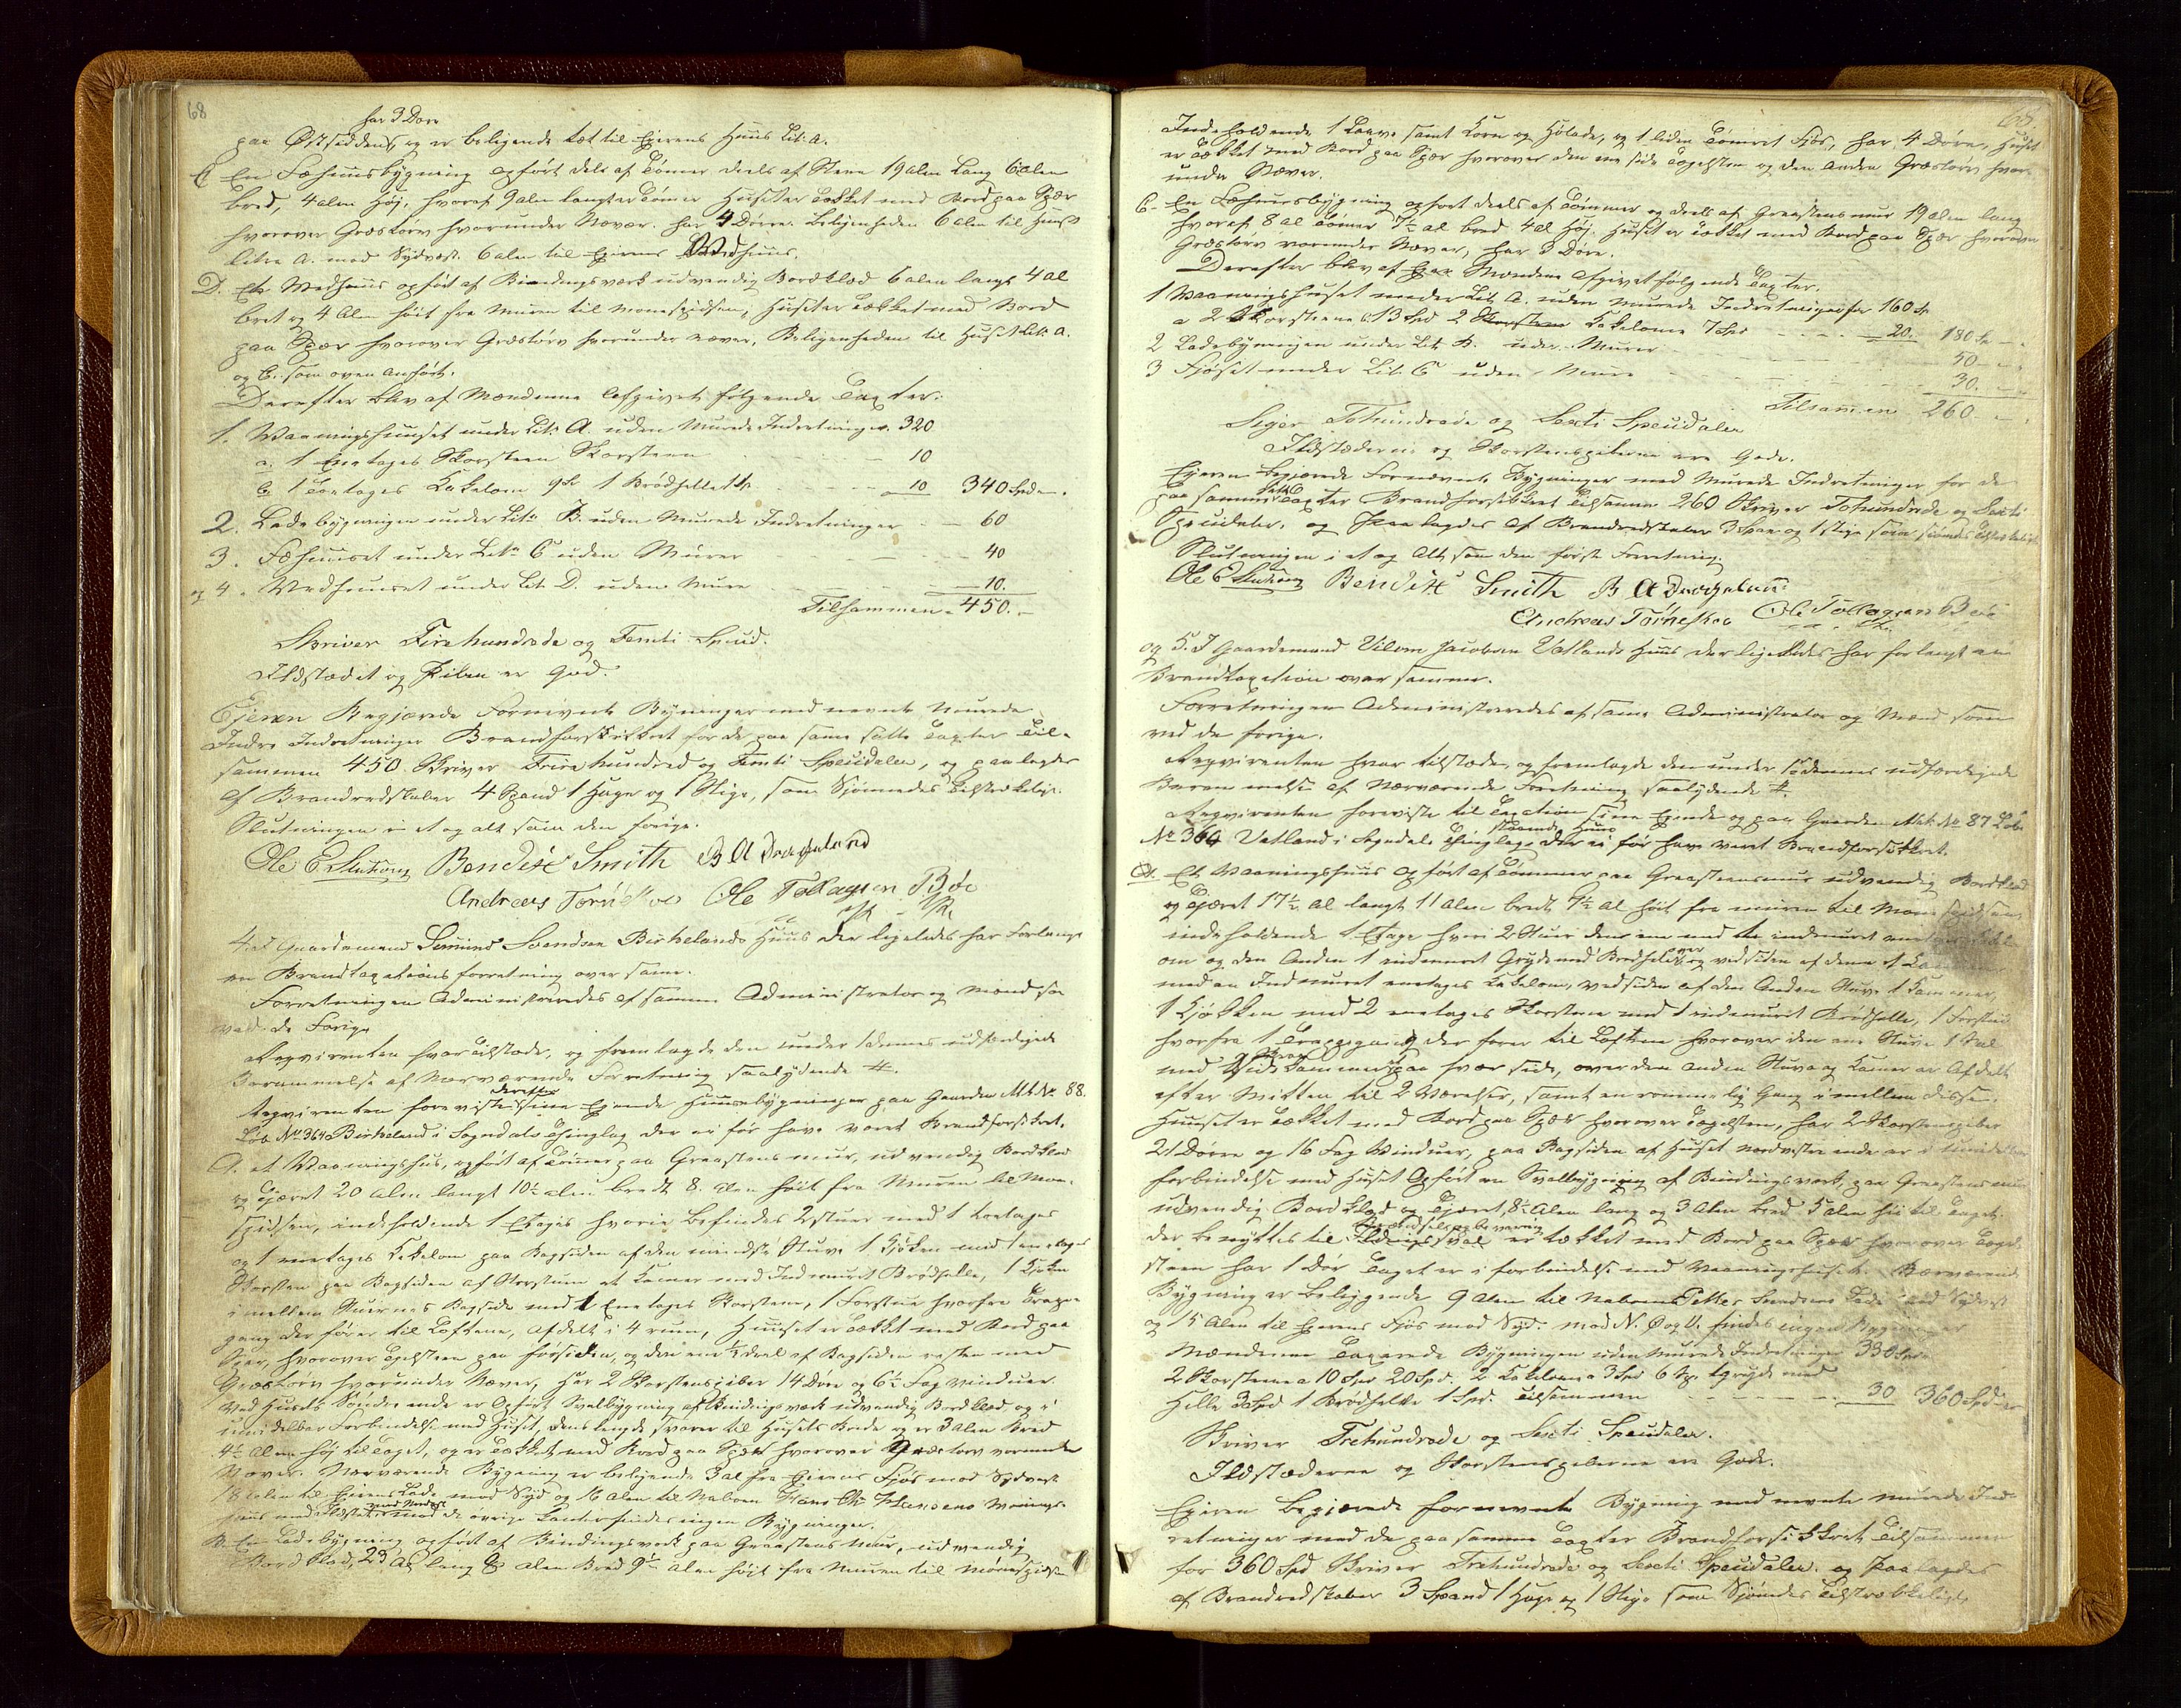 68
har 3 Døre
paa Østsidden, og er beligende tæt til Ejerens Huus Lit. A.
C En Fæhuusbygning opført dels af Tømer deels af Steen 19 alen Lang 6 alen
bred, 4 alen høj, hvoraf 9 alen langs er Tømer Huset er Tækket med Bord paa Spær
hvorover Græstørv hvorunder Næver. har 4 Dørre. Beligenheden 6 alen til Huus
Litra A. mod Sydvest. 6 alen til Ejerens Vedhuus.
D. Et Vedhuus opført af Bindingsværk udvendig Bordklæd 6 alen langt 4 al
bret og 4 Alen høit fra Muren til Monespidsen, Huset er Tækket med Bord
paa Spær hvorover Græstørv hvorunder næver, Beligenheden til Huset Lit. A.
og C. som oven anført.
Derefter blev af Mændenne Afgivet følgende Taxter.
1. Vaaningshuuset under Lit. A. uden Murede Indretninger. 320
a. 1 Enetages Skorsteen Skorsteen 10
b 1 Toetages Kakelovn 9 Sp 1 Brødhelle 1 Sp 10 340 Spd.
2. Ladebygningen under Lit. B. uden Murede Indretninger 60
3. Fæhuuset under Lit. C uden Murer 40
og 4. Vedhuuset under Lit. D. uden Mure 10.
Tilsammen 450.
Skriver Firehundrede og Femti Speud.
Ildstædet og Piben er God.
Ejeren Begjærede Fornævnte Bygninger med nævnte Murede
Indre Indretninger Brandforsikkret for de paa same satte Taxter Til-
sammen 450 Skriver Firehundred og Femti Speudaler, og paalagdes
af Brandredskaber 4 Spand 1 Hage og 1 Stige, som Sjønnedes Tilstrækkelige.
Slutningen i et og alt som den forige.
Ole E Bendix Smith B A Drageland
Andreas Tørneskoe Ole Tollagsen Bøe
4 ad Gaardemand Simund Svendsen Birkelands Huus der ligeledes har Forlangt
en Brandtaxations forretning over same.
Forretningen Administreredes af samme Administrator og Mænd som
ved de Forige
Reqvirenten var Tilstæde, og fremlagde den under Idennes udfærdigede
Berammelse af Nærværende Forretning saalydende #.
Reqvirenten foreviste derefter sine Ejende Huusebygninger paa Gaarden Mt. No 88.
Løb No 364 Birkeland i Sogndals Thinglag der ei før have været Brandforsikret.
A. et Vaaningshus, opført af Tømer paa Graastens muur, udvendig Bordklæd
og Tjæret 20 alen langt 10½ alen bredt 8. alen høit fra Muren til Mon-
spidsen, indeholdende 1 Etage hvorie befindes 2 Stuer med 1 toetages
og 1 enetages Kakelovn paa Bagsiden af den mindste Stuve 1 Kjøken med 1 enetages
Skorsten paa Bagsiden af Skorstenen et Kamer med Indmuret Brødhelle, 1 Kjøken
imellem Stuernes Bagside med 1 Enetages Skorsteen, 1 Forstue hvorfra Trappe
gang der fører til Loftene, afdelt i 4 rum, Huuset er Tækket med Bord paa
Spær, hvorover Tegelsteen paa forsiden, og den ene ½ deel af Bagsiden resten med
Græstørv hvorunder Næver, har 2 Skorstenspiber 14 Døre og 6½ Fag vinduer.
Ved Husets Søndre ende er Opført Svalbygning af Bindingsværk udvendig Bordklæd og i
umidelbar Forbindelse med Huset, dens lengde svarer til Husets Brede og er 3 Alen Bred
4½ Alen høj til Taget, og er Tækket med Bord paa Spær hvorover Græstørv vorunder
Næver. Nærværende Bygning er beligende 3 al fra Ejerens Fjøs mod Sydvest
18 alen til Ejerens Lade mod Syd og 16 alen til Naboen Hans Chr Hansens Vanings-
huus mod Nordost mod de øvrige Kanter findes ingen Bygninger.
B. En Ladebygning opført af Bindingsværk paa Graastens Muur, udvendig
Bordklæd, 23 Al lang 8 alen Bred 9½ alen høit fra Muren til Mønnespidsen
68
Indeholdende 1 Laave samt Korn og Hølade, og 1 liden Tømret Fjøs, har 4 Døre, Huset
er Tækket med Bord paa Spær hvorover den ene side Tagelsten og den Anden Græstørv hvor
under Næver.
C. En Fæhuusbygning opført deels af Tømmer og deels af Graastensmuur 19 alen lang
hvoraf 8 al Tømer 7½ al bred 4 al Høj. Huset er Tækket med Bord paa Spær hvorover
Græstørv vorunder Næver, har 3 Døre.
Derefter blev af Mændene Afgivet følgende Taxter.
1 Vaaningshuset under Lit. A. uden murede Indretninger for 160 Sp
a 2 Skorsteene 13 Spd 2 Kakelovne 7 Spd 20. 180 Sp
2 Ladebygningen under Lit. B. uden Murer 50
3 Fjøset under Lit. C uden Mure 30.
Tilsammen 260.
Siger Tohundrede og Sexti Speudaler
Ildstæderne og Skorstenspiberne ere Gode.
Ejeren Begjærede Fornævnte Bygninger med Murede Indretninger for de
paa samme satte Taxter Brandforsikkret Tilsamen 260 Skriver Tohundrede og Sexti
Speudaler, og paalagdes af Brandredskaber 3 Span og 1 stige som sjønnes Tilstrækkelige
Slutningen i et og Alt som den første Forretning.
Ole E Bendix Smith B A Drageland
Andreas Tørneskoe Ole Tollagsen Bøe
og 5. I Gaardemand Vilom Jacobsen Vatlands Huus der ligeledes har forlangt en
Brandtaxation over samme.
Forretningen Administreredes af same Administrator og Mænd som
ved de forige.
Reqvirenten hvar tilstæde, og fremlagde den under Idennes udfærdigede
Berammelse af Nærværende Forretning saalydende #.
Reqvirenten foreviste til Taxation sine Ejende og paa Gaarden Mat. No 87 Løb
No 364 Vatland i Sogndals Thinglag staaende Huse der ei før have været Brandforsikkret.
A. Et Vaaningshuus Opført af Tømmer paa Graasteensmuur udvendig Bordklæd
og Tjæret 17½ al langt 11 Alen bredt 9½ al høit fra muren til Monspidsen,
indeholdende 1 Etage hvori 2 Stuer den ene med en indmuret Kakel
om og den Anden 1 indmuret Gryde med Brødhelle over og ved siden af denne et Kammer
med en Indmuret enetages Kakelovn, ved siden af den Anden Stuve 1 Kammer,
1 Kjøkken med 2 enetages Skorstene med 1 indmurit Brødhelle, 1 Forstue
hvorfra 1 Trappegang der fører til Loften hvorover den ene Stuve 1 Sal
med 2 Side Kammer paa hvær side, over den Anden Stuve og Kamer er Afdelt
efter Mitten til 2 Værelser, samt en rommelig Gang imellem disse.
Huuset er Tækket med Bord paa Spær hvorover Tægelsten, har 2 Skorstenspiber
21 Dørre og 16 Fag Vinduer, paa Bagsiden af Huset Nordvestre ende er i umidelbar
forbindelse med Huset Opført en Svalbygning af Bindingsværk, paa Graastensmuur
udvendig Bordklæd og Tjæret, 8½ Alen lang og 3 Alen bred 5 alen høi til Taget.
der benyttes til er tækket med Bord paa Spær hvorover Tægel
steen har 1 Dør Taget er i forbindelse med Vaaningshuset. Nærværende
Bygning er Beliggende 9 Alen til Naboen Petter Svendsens Lade mod Sydvest
og 15 Alen til Ejerens Fjøs mod Syd. mod N. Ø og V. findes ingen Bygninger
Mændenne Taxerede Bygningen uden Murede Indretninger 330 Spd
2 Skorstene a 10 Spd 20 Spd. 2 Kakelovne a 3 Spd 6 Sp. 1 gryde med
Helle 3 Spd 1 Brødhelle 1 Spd. tilsammen 30 360 Spd
Skriver Trehundrede og Sexti Speudaler.
Ildstæderne og Skorstenspiberne ere Gode.
Ejeren Begjærede fornevnte Bygning med nevnte murede Ind
retninger med de paa samme Taxter Brandforsikkret Tilsammen
for 360 Spd Skriver Trehundrede og Sexti Speudaler. og Paalagdes
af Brandredskaber 3 Spand 1 Hage og 1 Stige som Sjønnedes Tilstrækkelige